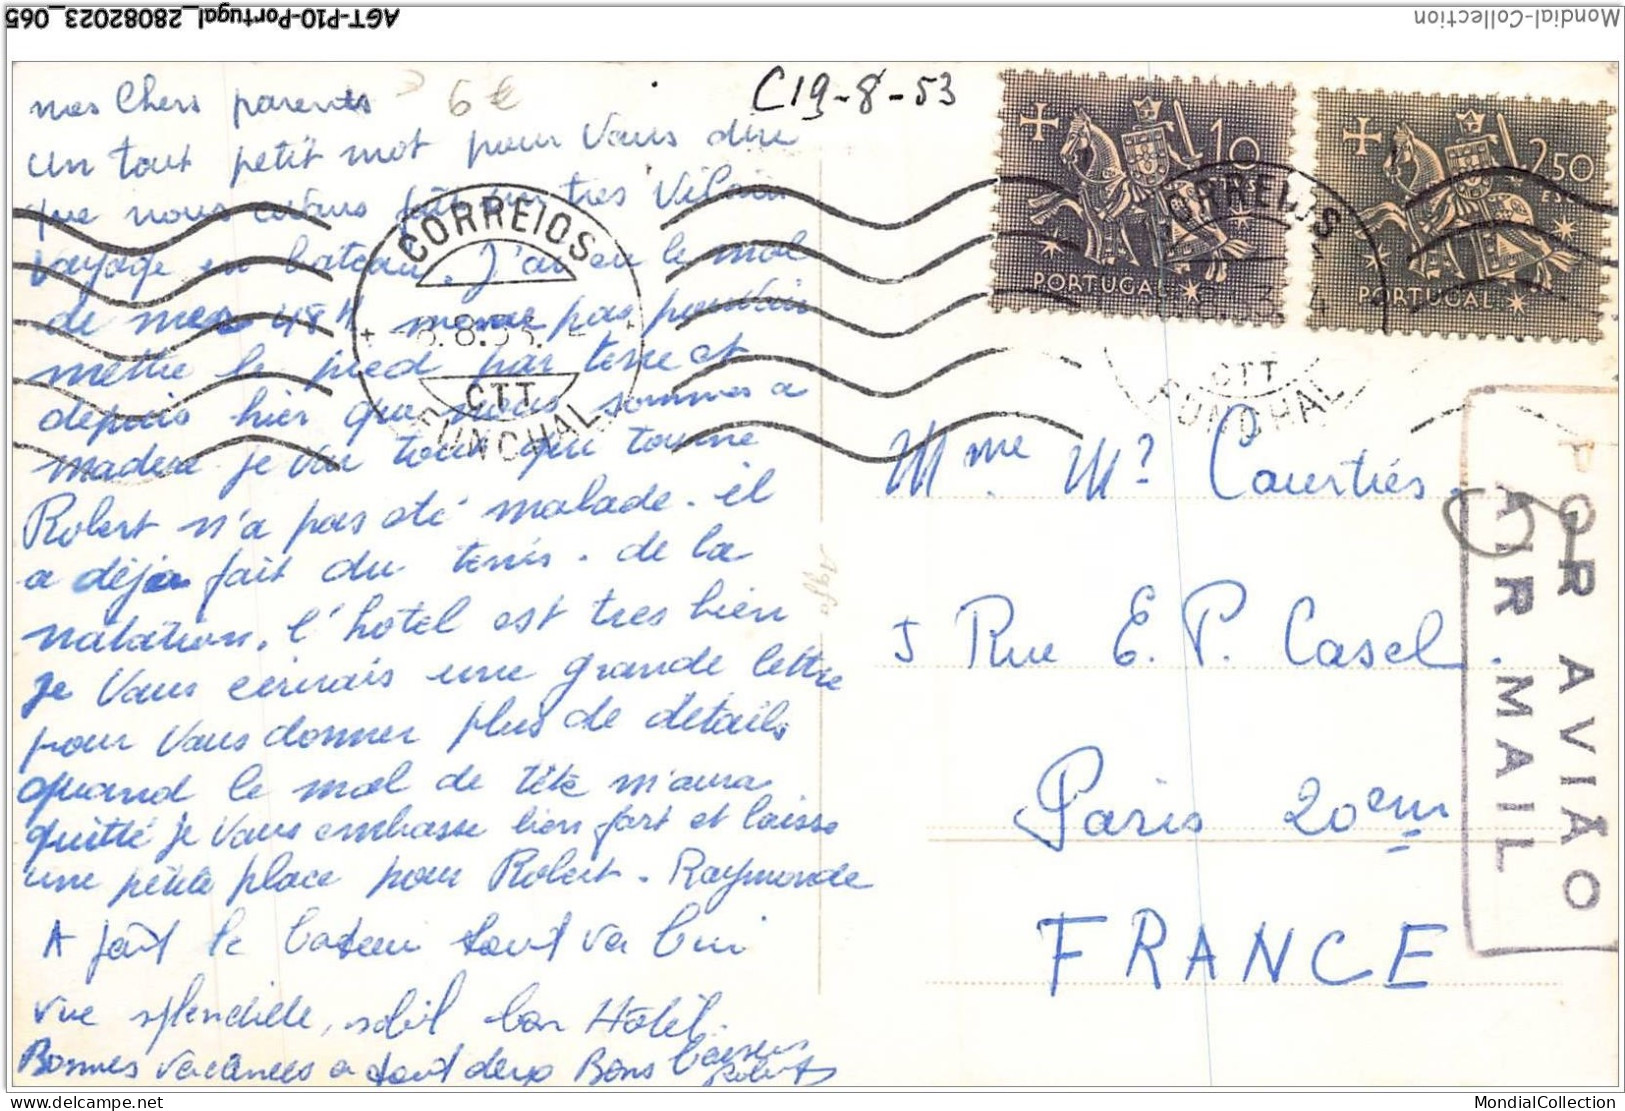 AGT-P10-Portugal_28082023_065
Mondial-Collection
6€
C19-8-53
mes Chers parents
un tout petit mot pour Vous dire
que nous avons fait un tres Vilain
Voyage en bateau. J'ai eu le mal
de mer 48 h meme pas pouvoir
mettre le pied par terre et
depuis hier que nous sommes a
madere je Voi tout qui tourne
Robert n'a pas eté malade. il
a déja fait du tenis. de la
natation. l'hotel est tres bien
je Vous ecrirais une grande lettre
pour Vous donner plus de details
quand le mal de tête m'aura
quitté je Vous embrasse bien fort et laisse
une petite place pour Robert. Raymonde
A part le bateau tout va bien
vue splendide, soleil bon Hôtel.
Bonnes vacances a tout deux Bons baisers
Robert
CORREIOS
8.8.53.
CTT
FUNCHAL
10
ESC
PORTUGAL
2$50
ESC
PORTUGAL
CORREIOS
CTT
FUNCHAL
POR AVIÃO
AIR MAIL
Mme Mr Courtiés.
5 Rue E. P. Casel.
Paris 20em
FRANCE
www.mondialcollection.com
MondialCollection